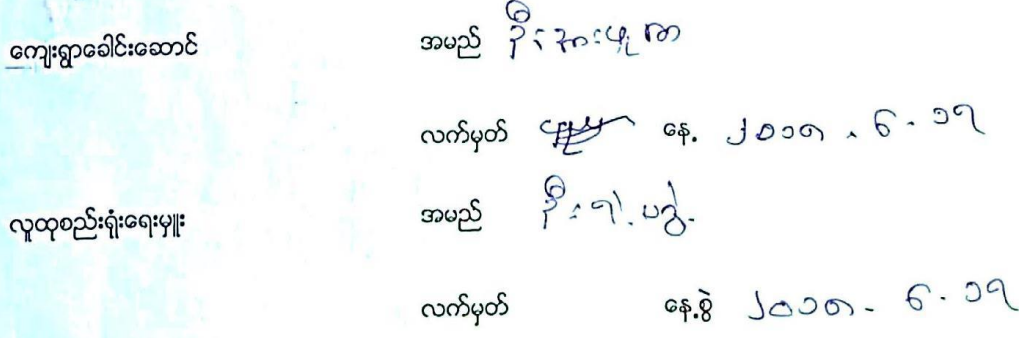 ကျေးရွာခေါင်းဆောင် အမည် ဦးအားဖူကာ
လက်မှတ် နေ့. ၂၀၁၈ . ၆ . ၁၅
လူထုစည်းရုံးရေးမှူး အမည် ဦး
လက်မှတ် နေ့.စွဲ ၂၀၁၈ - ၆ . ၁၅